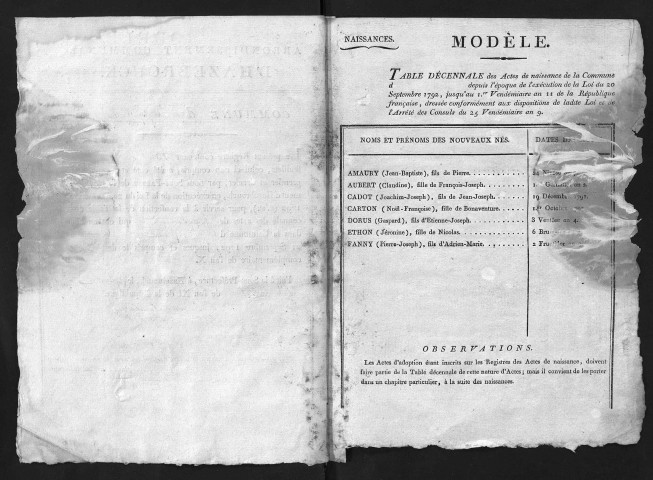 NAISSANCES.
MODÈLE.
TABLE DÉCENNALE des Actes de naissance de la Commune
d depuis l'époque de l'exécution de la Loi du 20
Septembre 1792, jusqu'au 1.er Vendémiaire an 11 de la République
française, dressée conformément aux dispositions de ladite Loi et
l'Arrêté des Consuls du 25 Vendémiaire an 9.
NOMS ET PRÉNOMS DES NOUVEAUX NÉS. DATES
AMAURY (Jean-Baptiste), fils de Pierre. 24
AUBERT (Claudine), fille de François-Joseph. 1
CADOT (Joachim-Joseph), fils de Jean-Joseph. 19 Décemb
CARTON (Noël-Françoise), fille de Bonaventure. 1.er Octobre
DORUS (Gaspard), fils d'Etienne-Joseph. 3 Vendém an 4.
ETHON (Séronine), fille de Nicolas. 6 Bru
FANNY (Pierre-Joseph), fils d'Adrien-Marie. 2 Fru
OBSERVATIONS.
Les Actes d'adoption étant inscrits sur les Registres des Actes de naissance, doivent
faire partie de la Table décennale de cette nature d'Actes; mais il convient de les porter
dans un chapitre particulier, à la suite des naissances.